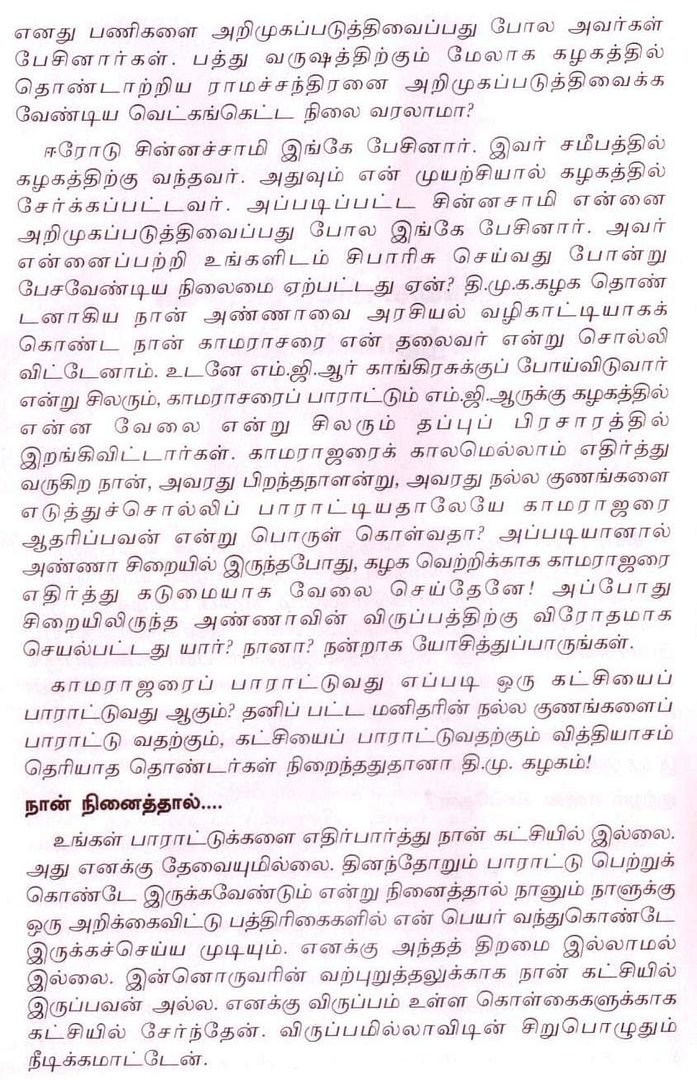 எனது பணிகளை அறிமுகப்படுத்திவைப்பது போல அவர்கள்
பேசினார்கள். பத்து வருஷத்திற்கும் மேலாக கழகத்தில்
தொண்டாற்றிய ராமச்சந்திரனை அறிமுகப்படுத்திவைக்க
வேண்டிய வெட்கங்கெட்ட நிலை வரலாமா?
ஈரோடு சின்னச்சாமி இங்கே பேசினார். இவர் சமீபத்தில்
கழகத்திற்கு வந்தவர். அதுவும் என் முயற்சியால் கழகத்தில்
சேர்க்கப்பட்டவர். அப்படிப்பட்ட சின்னசாமி என்னை
அறிமுகப்படுத்திவைப்பது போல இங்கே பேசினார். அவர்
என்னைப்பற்றி உங்களிடம் சிபாரிசு செய்வது போன்று
பேசவேண்டிய நிலைமை ஏற்பட்டது ஏன்? தி.மு.க.கழக தொண்
டனாகிய நான் அண்ணாவை அரசியல் வழிகாட்டியாகக்
கொண்ட நான் காமராசரை என் தலைவர் என்று சொல்லி
விட்டேனாம். உடனே எம்.ஜி.ஆர் காங்கிரசுக்குப் போய்விடுவார்
என்று சிலரும், காமராசரைப் பாராட்டும் எம்.ஜி.ஆருக்கு கழகத்தில்
என்ன வேலை என்று சிலரும் தப்புப் பிரசாரத்தில்
இறங்கிவிட்டார்கள். காமராஜரைக் காலமெல்லாம் எதிர்த்து
வருகிற நான், அவரது பிறந்தநாளன்று, அவரது நல்ல குணங்களை
எடுத்துச்சொல்லிப் பாராட்டியதாலேயே காமராஜரை
ஆதரிப்பவன் என்று பொருள் கொள்வதா? அப்படியானால்
அண்ணா சிறையில் இருந்தபோது, கழக வெற்றிக்காக காமராஜரை
எதிர்த்து கடுமையாக வேலை செய்தேனே! அப்போது
சிறையிலிருந்த அண்ணாவின் விருப்பத்திற்கு விரோதமாக
செயல்பட்டது யார்? நானா? நன்றாக யோசித்துப்பாருங்கள்.
காமராஜரைப் பாராட்டுவது எப்படி ஒரு கட்சியைப்
பாராட்டுவது ஆகும்? தனிப் பட்ட மனிதரின் நல்ல குணங்களைப்
பாராட்டு வதற்கும், கட்சியைப் பாராட்டுவதற்கும் வித்தியாசம்
தெரியாத தொண்டர்கள் நிறைந்ததுதானா தி.மு. கழகம்!
நான் நினைத்தால்....
உங்கள் பாராட்டுக்களை எதிர்பார்த்து நான் கட்சியில் இல்லை.
அது எனக்கு தேவையுமில்லை. தினந்தோறும் பாராட்டு பெற்றுக்
கொண்டே இருக்கவேண்டும் என்று நினைத்தால் நானும் நாளுக்கு
ஒரு அறிக்கைவிட்டு பத்திரிகைகளில் என் பெயர் வந்துகொண்டே
இருக்கச்செய்ய முடியும். எனக்கு அந்தத் திறமை இல்லாமல்
இல்லை. இன்னொருவரின் வற்புறுத்தலுக்காக நான் கட்சியில்
இருப்பவன் அல்ல. எனக்கு விருப்பம் உள்ள கொள்கைகளுக்காக
கட்சியில் சேர்ந்தேன். விருப்பமில்லாவிடின் சிறுபொழுதும்
நீடிக்கமாட்டேன்.